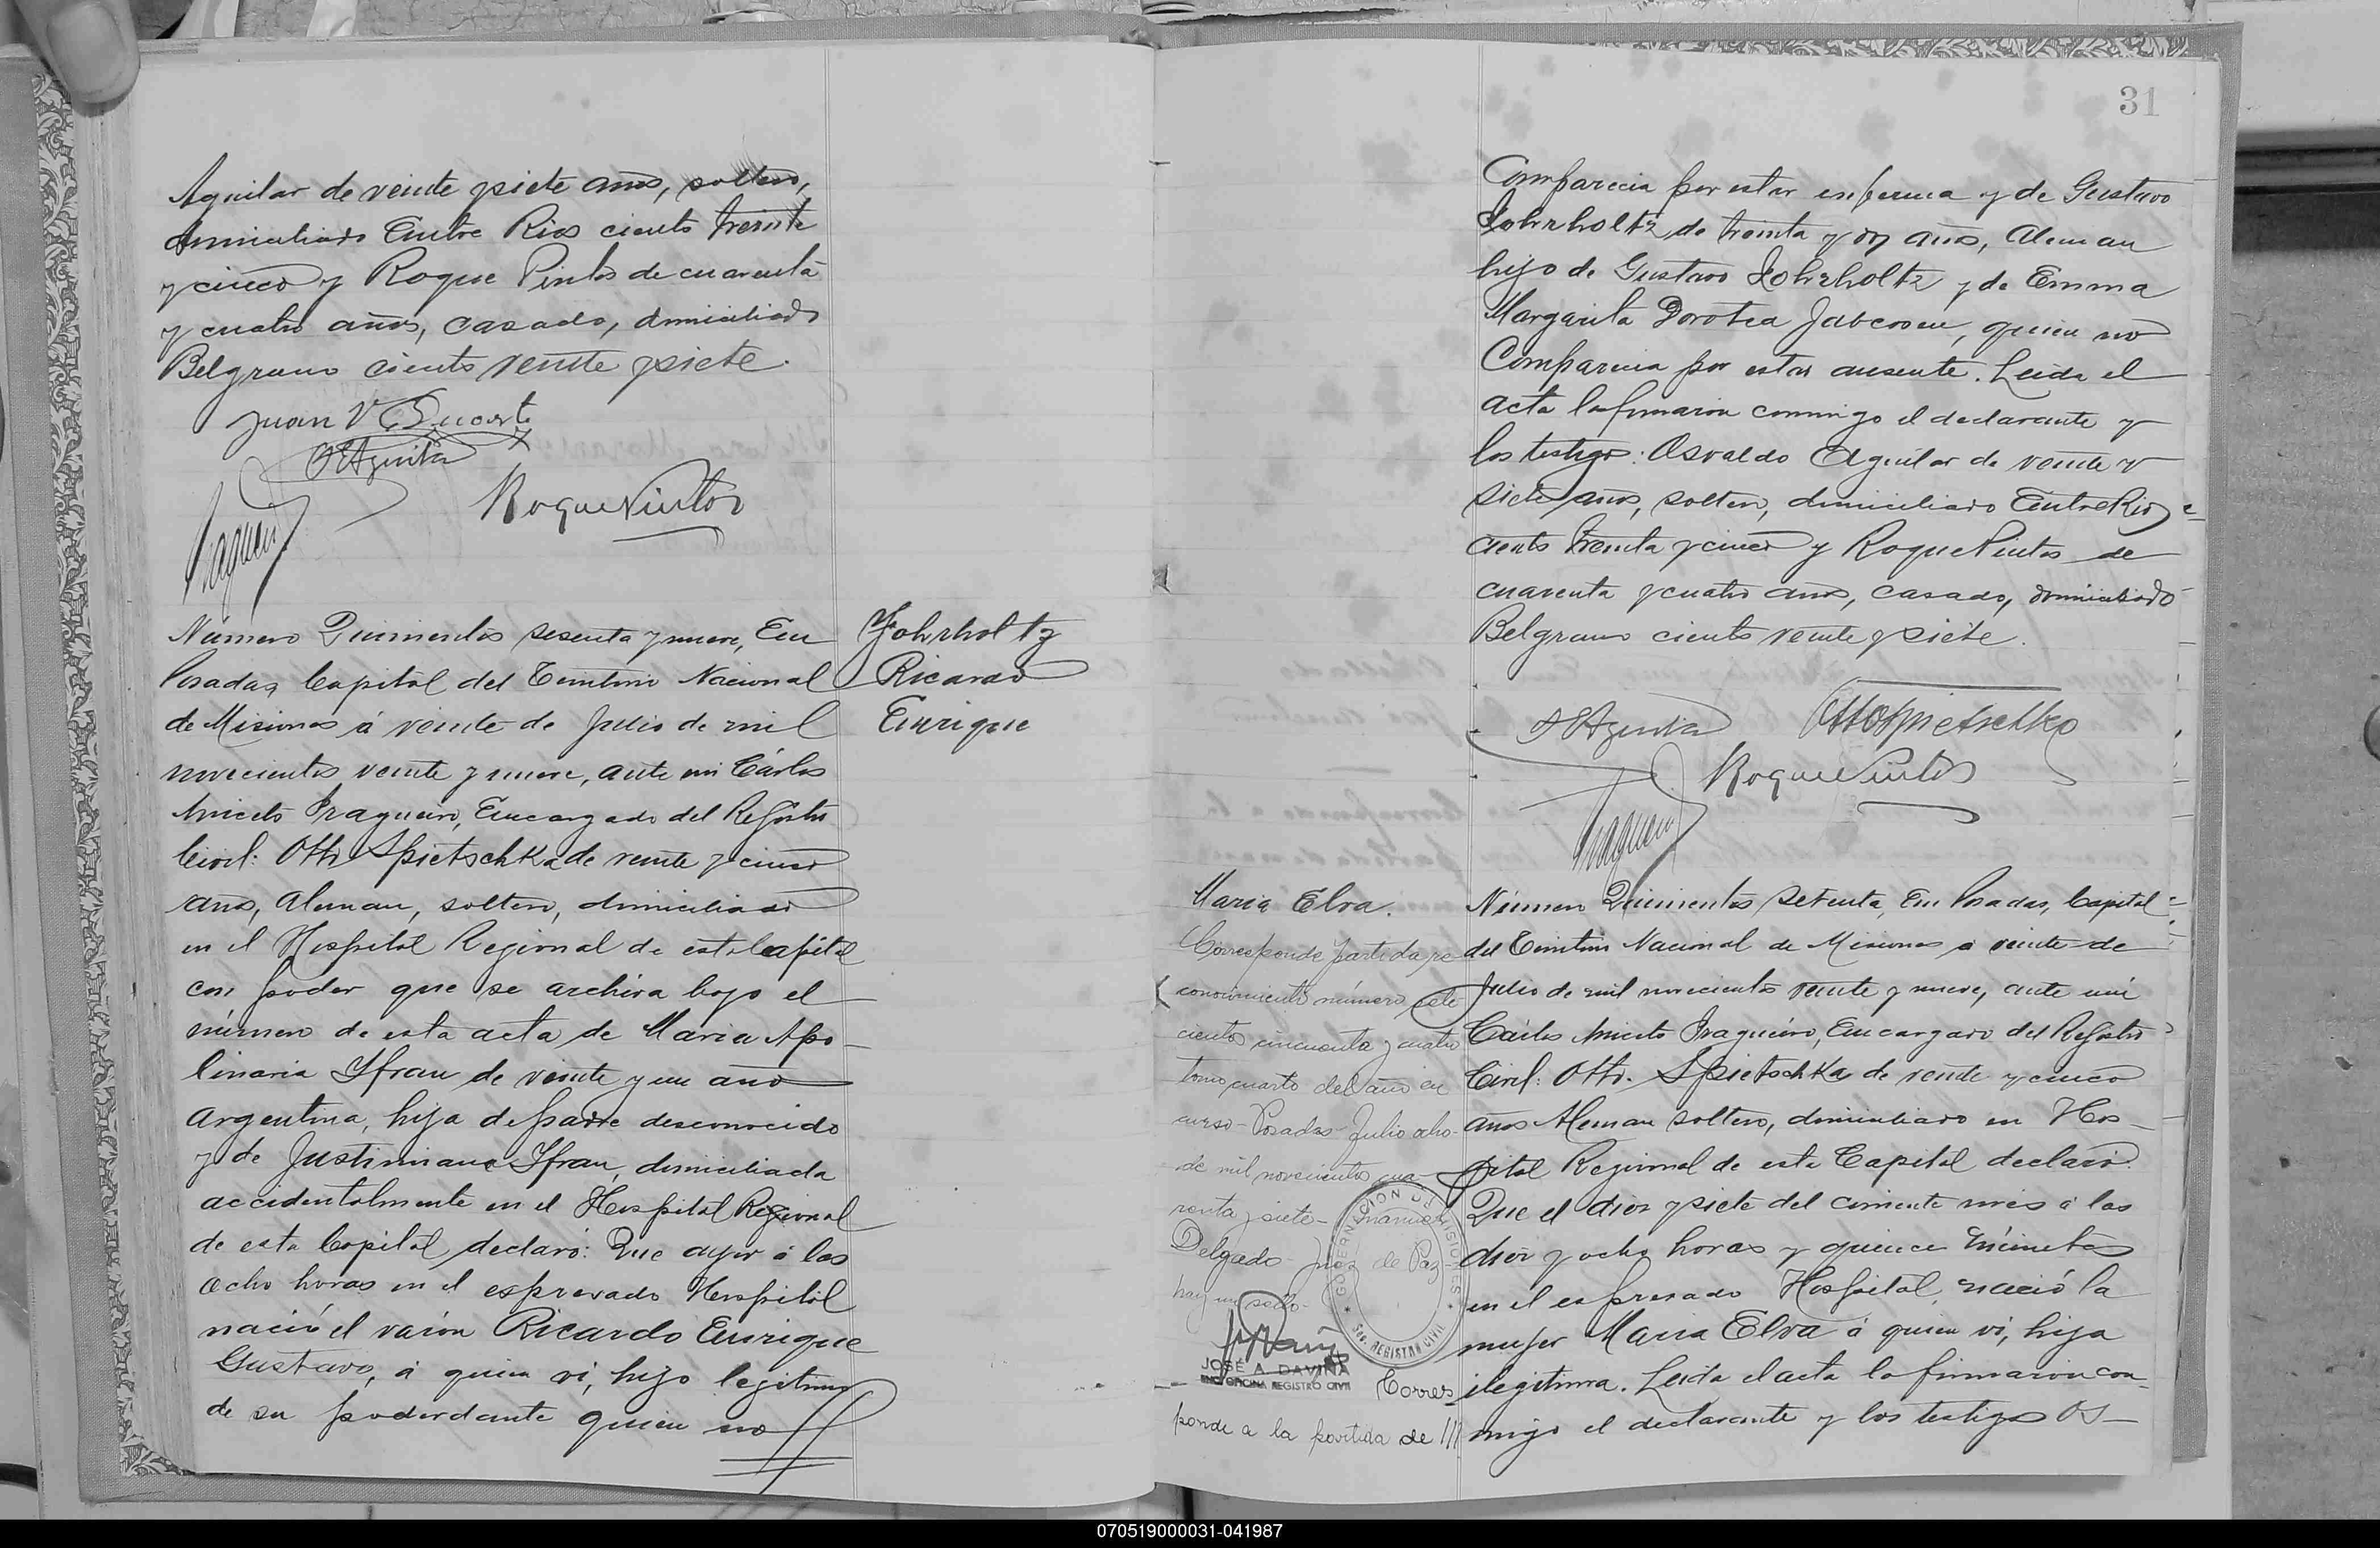 Aguilar de veinte y siete años, soltero,
domiciliado Entre Rios ciento treinta
y cinco y Roque Pintos de cuarenta
y cuatro años, casado, domiciliado
Belgrano ciento veinte y siete.
Juan V
OEAguilar
Roque Pintos
Número Quinientos sesenta y nueve, En
Posadas Capital del Territorio Nacional
de Misiones á veinte de Julio de mil
novecientos veinte y nueve, ante mi Cárlos
Aniceto Fragueiro, Encargado del Registro
Civil: Otto Spietschka de veinte y cinco
años, Aleman, soltero, domiciliado
en el Hospital Regional de esta Capital
con poder que se archiva bajo el
número de esta acta de Maria Apo-
linaria Yfran de veinte y un año
Argentina, hija de padre desconocido
y de Justiniana Yfran, domiciliada
accidentalmente en el Hospital Regional
de esta Capital, declaró: Que ayer á las
ocho horas en el espresado Hospital
nació el varón Ricardo Enrique
Gustavo, á quien ví, hijo legítimo
de su poderdante quien no
Yohrholtz
Ricardo
Enrique
31
Comparecia por estar enferma y de Gustavo
Yohrholtz de treinta y años, Aleman
hijo de Gustavo Yohrholtz y de Emma
Margarita Dorotea quien no
Comparecia por estar ausente. Leida el
acta la firmaron conmigo el declarante y
los testigos: Osvaldo Aguilar de veinte y
siete años, soltero, domiciliado Entre Rios
ciento treinta y cinco y Roque Pintos de
cuarenta y cuatro años, casado, domiciliado
Belgrano ciento veinte y siete.
OEAguilar Otto Spietschka
Roque Pintos
Maria Elva.
Corresponde partida re-
conocimiento número sete-
cientos cincuenta y cuatro
tomo cuarto del año en
curso - Posadas - Julio ocho-
de mil novecientos cua-
renta y siete - Manuel
Delgado - Juez de Paz
hay un sello -
GOBERNACION DE MISIONES
SEC. REGISTRO CIVIL
JOSÉ A. DAVIÑA
ENC. OFICINA REGISTRO CIVIL
Corres
ponde a la partida de ///
Número Quinientos setenta, En Posadas, Capital
del Territorio Nacional de Misiones á veinte de
Julio de mil novecientos veinte y nueve, ante mi
Cárlos Aniceto Fragueiro, Encargado del Registro
Civil: Otto. Spietschka de veinte y cinco
años Aleman soltero, domiciliado en Hos-
pital Regional de esta Capital declaró:
Que el diez y siete del corriente mes á las
diez y ocho horas y quince minutos
en el espresado Hospital, nació la
mujer Maria Elva á quien ví, hija
ilegítima. Leida el acta la firmaron con-
migo el declarante y los testigos Os-
070519000031-041987